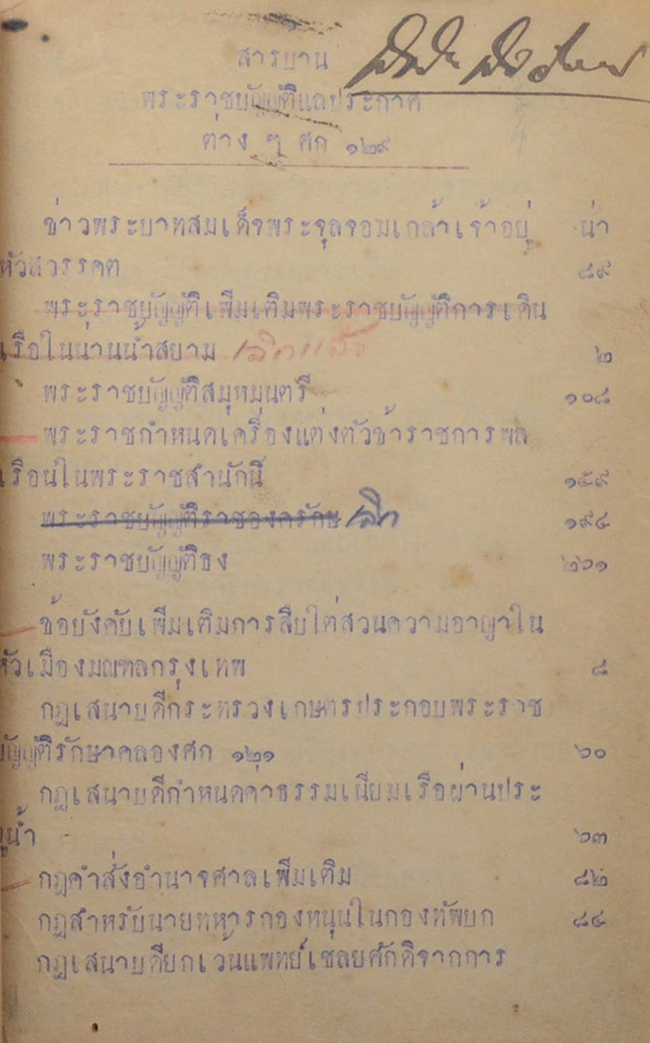 สารบาน
พระราชบัญญัติแลประกาศ
ต่าง ๆ ศก ๑๒๙
ข่าวพระบาทสมเด็จพระจุลจอมเกล้าเจ้าอยู่ น่า
หัวสวรรคต ๘๙
พระราชบัญญัติเพิ่มเติมพระราชบัญญัติการเดิน
เรือในน่านน้ำสยาม เลิกแล้ว ๒
พระราชบัญญัติสมุหมนตรี ๑๐๘
พระราชกำหนดเครื่องแต่งตัวข้าราชการพล
เรือนในพระราชสำนักนี้ ๑๕๙
พระราชบัญญัติราชองครักษ เลิก ๑๙๔
พระราชบัญญัติธง ๒๐๑
ข้อบังคับเพิ่มเติมการสืบไต่สวนความอาญาใน
หัวเมืองมณฑลกรุงเทพ ๘
กฎเสนาบดีกระทรวงเกษตรประกอบพระราช
บัญญัติรักษาคลองศก ๑๒๑ ๖๐
กฎเสนาบดีกำหนดค่าธรรมเนียมเรือผ่านประ
ตูน้ำ ๖๓
กฎคำสั่งอำนาจศาลเพิ่มเติม ๘๒
กฎสำหรับนายทหารกองหนุนในกองทัพบก ๘๔
กฎเสนาบดียกเว้นแพทย์เชลยศักดิ์จากการ